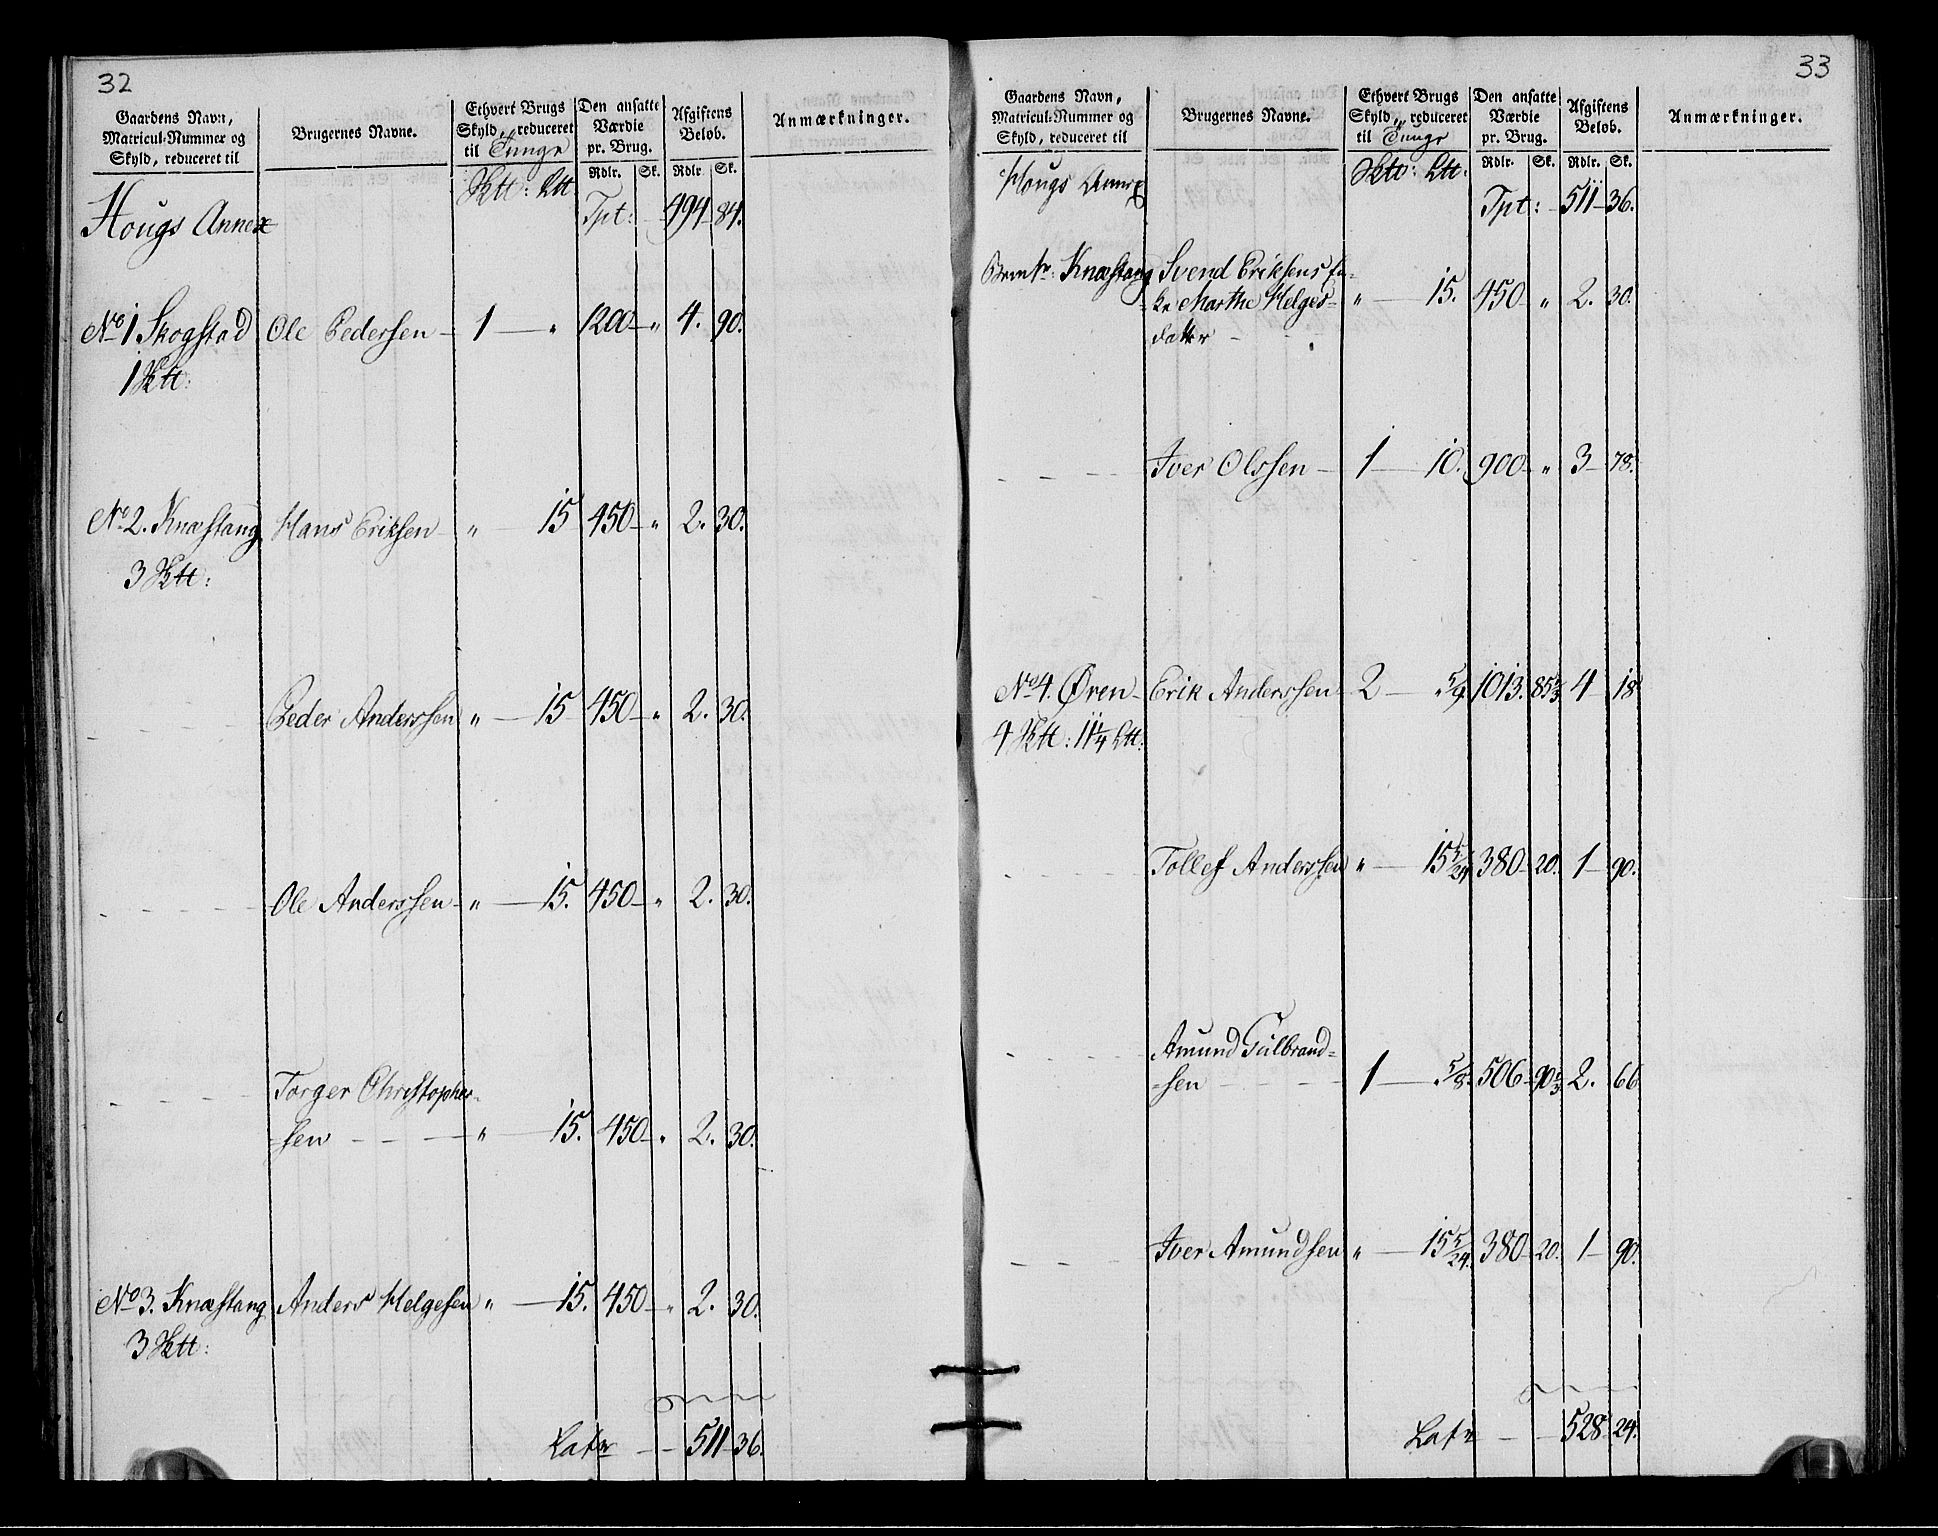 32
Gaardens Navn,
Matricul-Nummer og
Skyld, reduceret til
Brugernes Navne.
Ethvert Brugs
Skyld, reduceret
til Tunge
Den ansatte
Værdie
pr. Brug.
Afgiftens
Beløb.
Anmærkninger.
Rdlr. Sk. Rdlr Sk.
Hougs Annex Tpt: 494 84.
No 1 Skogstad Ole Pedersen 1 " 1200 " 4. 90.
No 2. Knæstang Hans Eriksen " 15 450 " 2. 30.
Peder Anderssen " 15 450 " 2. 30.
Ole Anderssen " 15. 450 " 2. 30.
Torger Christopher-
sen " 15. 450 " 2. 30.
No 3. Knæstang Anders Helgesen " 15. 450 " 2. 30.
Latr 511 36.
33
Gaardens Navn,
Matricul-Nummer og
Skyld, reduceret til
Brugernes Navne.
Ethvert Brugs
Skyld, reduceret
til Tunge
Den ansatte
Værdie
pr. Brug.
Afgiftens
Beløb.
Anmærkninger.
Rdlr. Sk. Rdlr. Sk.
Hougs Annex Tpt: 511 36.
Knæstang Svend Eriksens En-
ke Marthe Helges- " 15. 450 " 2. 30.
datter
Iver Olssen 1 10. 900 " 3 78.
No 4. Øren Erik Anderssen 2 1013. 4 18
Tollef Anderssen " 15 5/24 380 20. 1 90.
Amund Gulbrand-
sen 1 5/8. 506 2. 66
Iver Amundsen " 15 5/24. 380 20. 1 90.
Latr 528 24.